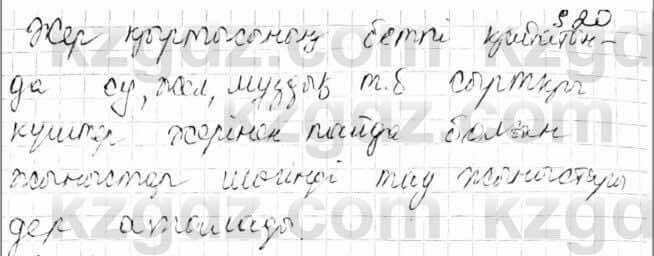 § 20
Жер қыртысының беткі қабатын-
да су, жел, мұздық т.б сыртқы
күштер әсерінен пайда болған
жыныстар шөгінді тау жыныстары
деп аталады.